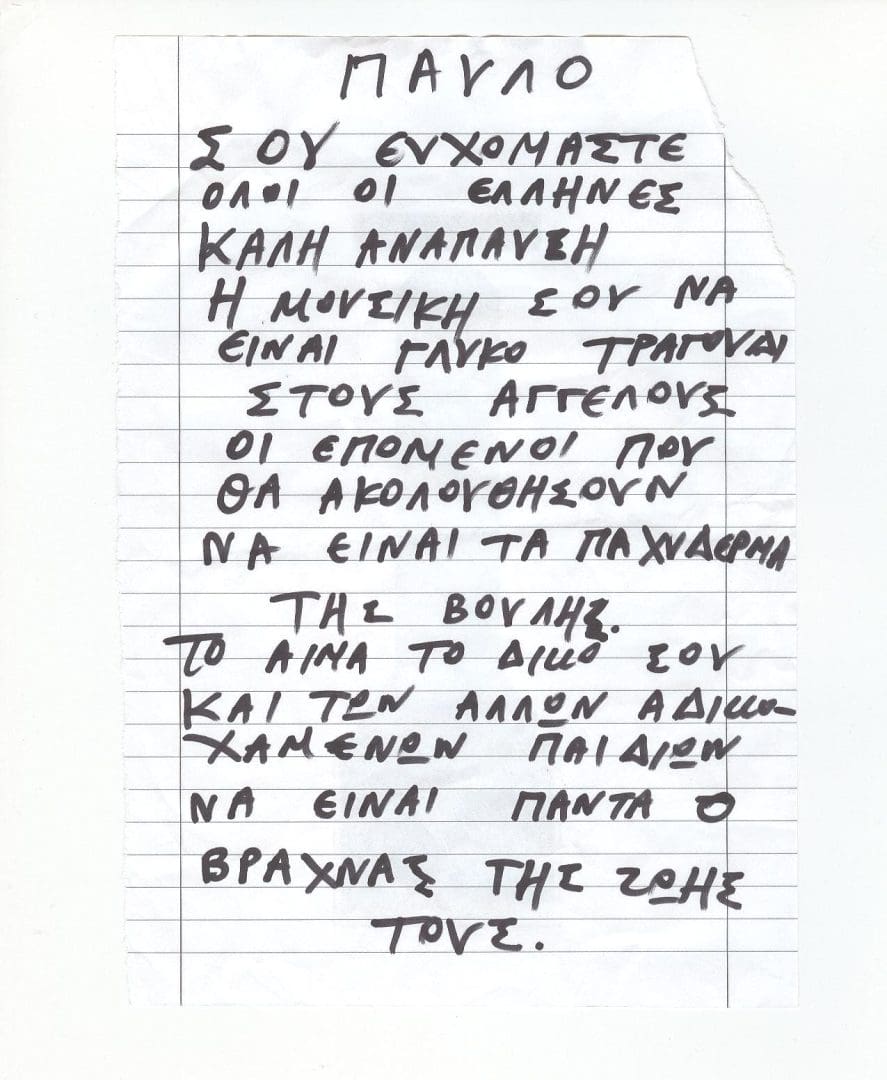 ΠΑΥΛΟ
ΣΟΥ ΕΥΧΟΜΑΣΤΕ
ΟΛΟΙ ΟΙ ΕΛΛΗΝΕΣ
ΚΑΛΗ ΑΝΑΠΑΥΣΗ
Η ΜΟΥΣΙΚΗ ΣΟΥ ΝΑ
ΕΙΝΑΙ ΓΛΥΚΟ ΤΡΑΓΟΥΔΙ
ΣΤΟΥΣ ΑΓΓΕΛΟΥΣ
ΟΙ ΕΠΟΜΕΝΟΙ ΠΟΥ
ΘΑ ΑΚΟΛΟΥΘΗΣΟΥΝ
ΝΑ ΕΙΝΑΙ ΤΑ ΠΑΧΥΔΕΡΜΑ
ΤΗΣ ΒΟΥΛΗΣ.
ΤΟ ΑΙΜΑ ΤΟ ΔΙΚΟ ΣΟΥ
ΚΑΙ ΤΩΝ ΑΛΛΩΝ ΑΔΙΚΟ-
ΧΑΜΕΝΩΝ ΠΑΙΔΙΩΝ
ΝΑ ΕΙΝΑΙ ΠΑΝΤΑ Ο
ΒΡΑΧΝΑΣ ΤΗΣ ΖΩΗΣ
ΤΟΥΣ.